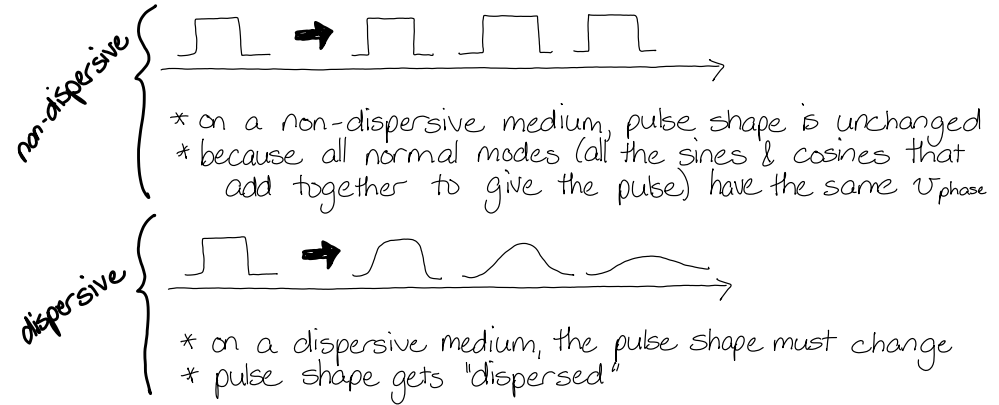 non-dispersive
* on a non-dispersive medium, pulse shape is unchanged
* because all normal modes (all the sines & cosines that
add together to give the pulse) have the same vphase
dispersive
* on a dispersive medium, the pulse shape must change
* pulse shape gets "dispersed"